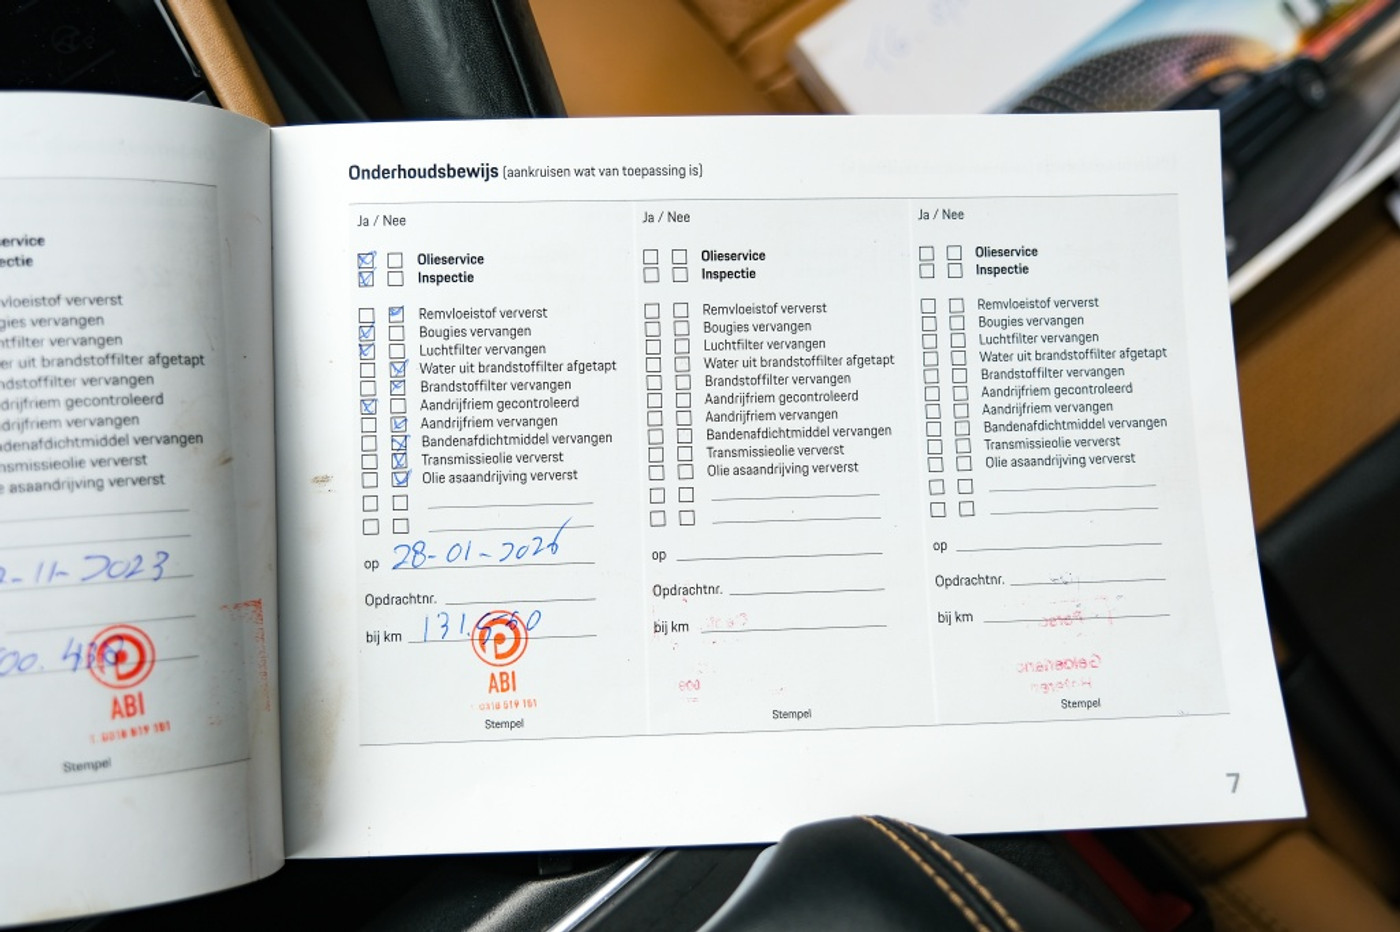 ervice
ectie
vloeistof ververst
gies vervangen
htfilter vervangen
er uit brandstoffilter afgetapt
ndstoffilter vervangen
drijfriem gecontroleerd
drijfriem vervangen
ndenafdichtmiddel vervangen
nsmissieolie ververst
e asaandrijving ververst
-11-2023
ABI
Stempel
Onderhoudsbewijs (aankruisen wat van toepassing is)
Ja / Nee
Olieservice
Inspectie
Remvloeistof ververst
Bougies vervangen
Luchtfilter vervangen
Water uit brandstoffilter afgetapt
Brandstoffilter vervangen
Aandrijfriem gecontroleerd
Aandrijfriem vervangen
Bandenafdichtmiddel vervangen
Transmissieolie ververst
Olie asaandrijving ververst
op 28-01-2026
Opdrachtnr.
bij km
ABI
0318 519 161
Stempel
Ja / Nee
Olieservice
Inspectie
Remvloeistof ververst
Bougies vervangen
Luchtfilter vervangen
Water uit brandstoffilter afgetapt
Brandstoffilter vervangen
Aandrijfriem gecontroleerd
Aandrijfriem vervangen
Bandenafdichtmiddel vervangen
Transmissieolie ververst
Olie asaandrijving ververst
op
Opdrachtnr.
bij km
Stempel
Ja / Nee
Olieservice
Inspectie
Remvloeistof ververst
Bougies vervangen
Luchtfilter vervangen
Water uit brandstoffilter afgetapt
Brandstoffilter vervangen
Aandrijfriem gecontroleerd
Aandrijfriem vervangen
Bandenafdichtmiddel vervangen
Transmissieolie ververst
Olie asaandrijving ververst
op
Opdrachtnr.
bij km
Stempel
7